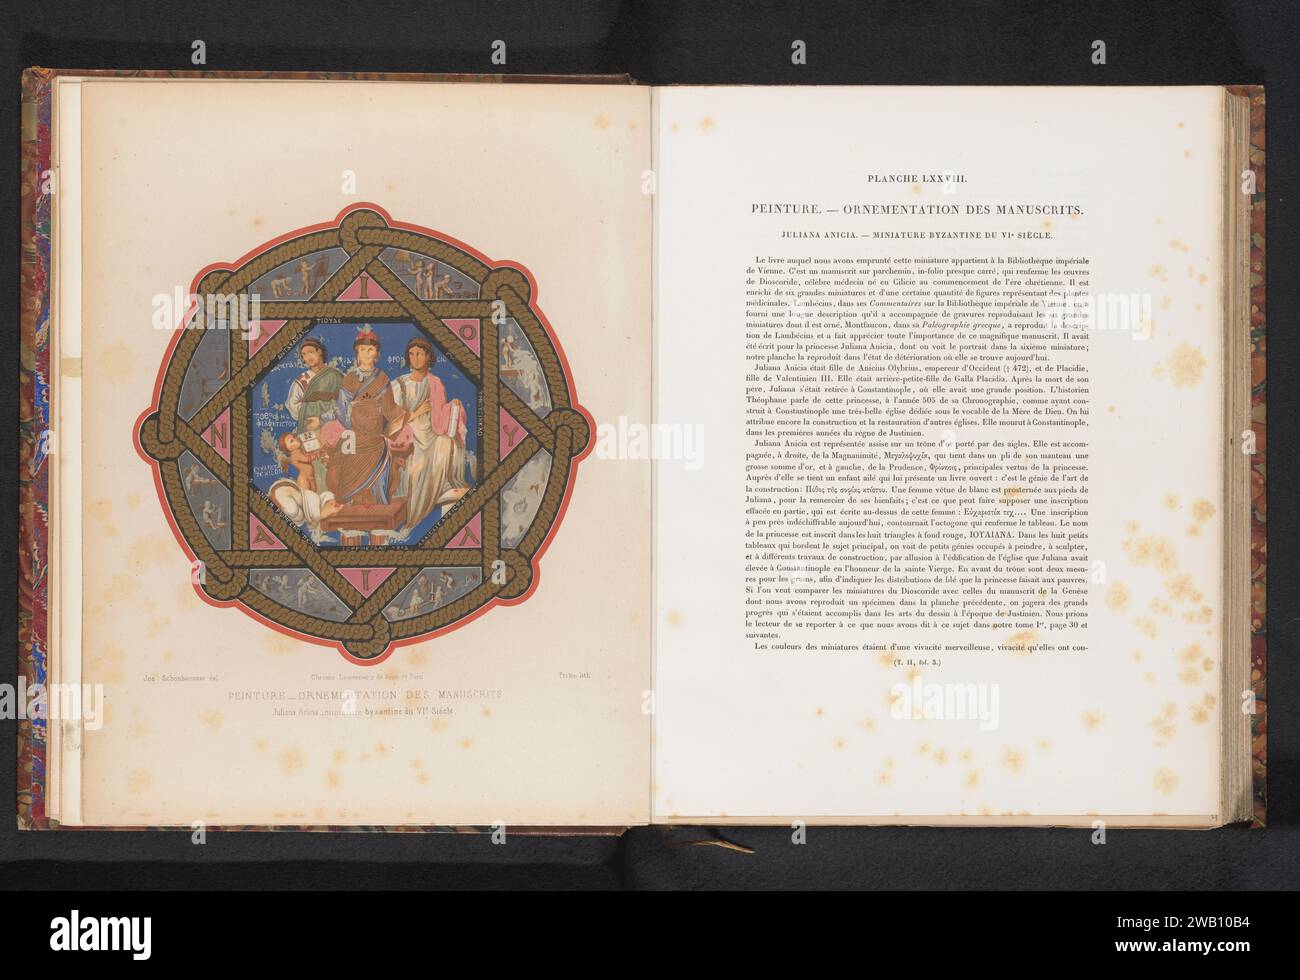 ΙΟΥΛΙΑΝΑ
Jos. Schönbrunner del.
Pralon lith.
PEINTURE_ORNEMENTATION DES MANUSCRITS
Juliana Anicia_miniature byzantine du VIe Siècle.
PLANCHE LXXVIII.
PEINTURE. — ORNEMENTATION DES MANUSCRITS.
JULIANA ANICIA. — MINIATURE BYZANTINE DU VIe SIÈCLE.
Le livre auquel nous avons emprunté cette miniature appartient à la Bibliothèque impériale
de Vienne. C'est un manuscrit sur parchemin, in-folio presque carré, qui renferme les œuvres
de Dioscoride, célèbre médecin né en Cilicie au commencement de l'ère chrétienne. Il est
enrichi de six grandes miniatures et d'une certaine quantité de figures représentant des plantes
médicinales. Lambécius, dans ses Commentaires sur la Bibliothèque impériale de Vienne, en a
fourni une longue description qu'il a accompagnée de gravures reproduisant les six grandes
miniatures dont il est orné. Montfaucon, dans sa Paléographie grecque, a reproduit la descrip-
tion de Lambécius et a fait apprécier toute l'importance de ce magnifique manuscrit. Il avait
été écrit pour la princesse Juliana Anicia, dont on voit le portrait dans la sixième miniature ;
notre planche la reproduit dans l'état de détérioration où elle se trouve aujourd'hui.
Juliana Anicia était fille de Anicius Olybrius, empereur d'Occident († 472), et de Placidie,
fille de Valentinien III. Elle était arrière-petite-fille de Galla Placidia. Après la mort de son
père, Juliana s'était retirée à Constantinople, où elle avait une grande position. L'historien
Théophane parle de cette princesse, à l'année 505 de sa Chronographie, comme ayant con-
struit à Constantinople une très-belle église dédiée sous le vocable de la Mère de Dieu. On lui
attribue encore la construction et la restauration d'autres églises. Elle mourut à Constantinople,
dans les premières années du règne de Justinien.
Juliana Anicia est représentée assise sur un trône d'or porté par des aigles. Elle est accom-
pagnée, à droite, de la Magnanimité, Μεγαλοψυχία, qui tient dans un pli de son manteau une
grosse somme d'or, et à gauche, de la Prudence, Φρόνησις, principales vertus de la princesse.
Auprès d'elle se tient un enfant ailé qui lui présente un livre ouvert : c'est le génie de l'art de
la construction : Πόθος τῆς σοφίας κτίστου. Une femme vêtue de blanc est prosternée aux pieds de
Juliana, pour la remercier de ses bienfaits ; c'est ce que peut faire supposer une inscription
effacée en partie, qui est écrite au-dessus de cette femme : Εὐχαριστία τεχ.... Une inscription
à peu près indéchiffrable aujourd'hui, contournait l'octogone qui renferme le tableau. Le nom
de la princesse est inscrit dans les huit triangles à fond rouge, ΙΟΥΛΙΑΝΑ. Dans les huit petits
tableaux qui bordent le sujet principal, on voit de petits génies occupés à peindre, à sculpter,
et à différents travaux de construction, par allusion à l'édification de l'église que Juliana avait
élevée à Constantinople en l'honneur de la sainte Vierge. En avant du trône sont deux mesu-
res pour les grains, afin d'indiquer les distributions de blé que la princesse faisait aux pauvres.
Si l'on veut comparer les miniatures du Dioscoride avec celles du manuscrit de la Genèse
dont nous avons reproduit un spécimen dans la planche précédente, on jugera des grands
progrès qui s'étaient accomplis dans les arts du dessin à l'époque de Justinien. Nous prions
le lecteur de se reporter à ce que nous avons dit à ce sujet dans notre tome Ier, page 30 et
suivantes.
Les couleurs des miniatures étaient d'une vivacité merveilleuse, vivacité qu'elles ont con-
(T. II, fol. 3.)
alamy
Image ID: 2WB10B4
www.alamy.com